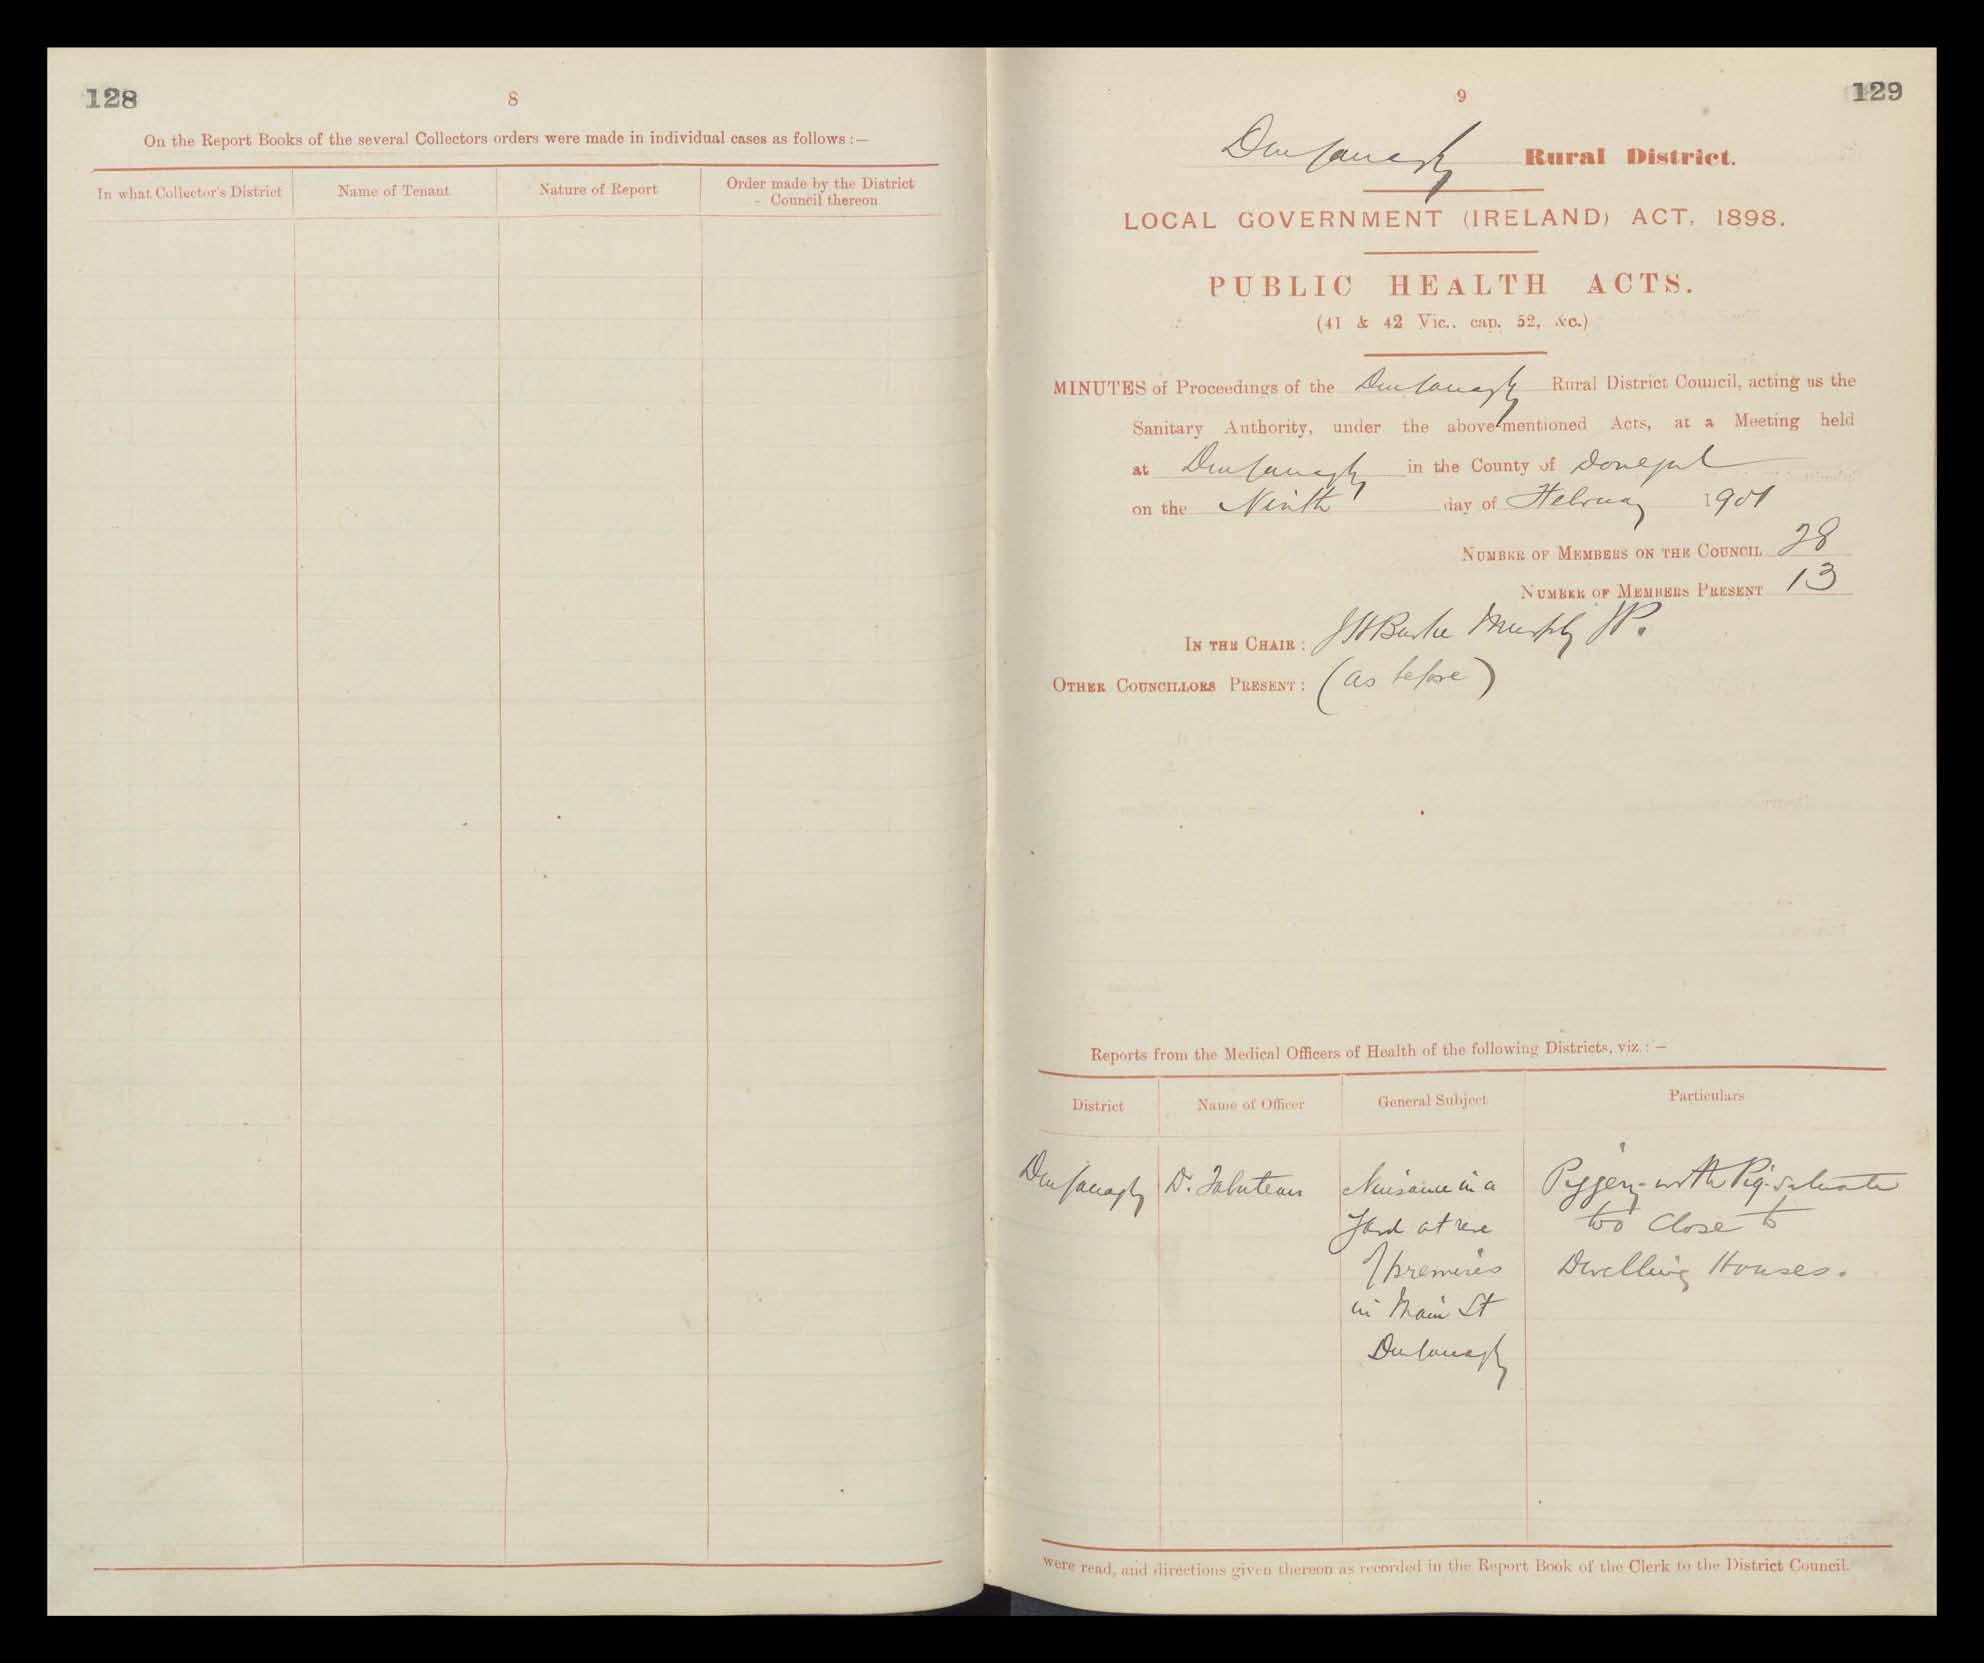 128
8
On the Report Books of the several Collectors orders were made in individual cases as follows :—
In what Collector's District
Name of Tenant
Nature of Report
Order made by the District
Council thereon
129
9
Dunfanaghy Rural District.
LOCAL GOVERNMENT (IRELAND) ACT, 1898.
PUBLIC HEALTH ACTS.
(41 & 42 Vic., cap. 52, &c.)
MINUTES of Proceedings of the Dunfanaghy Rural District Council, acting as the
Sanitary Authority, under the above-mentioned Acts, at a Meeting held
at Dunfanaghy in the County of Donegal
on the Ninth day of February 1901
NUMBER OF MEMBERS ON THE COUNCIL 28
NUMBER OF MEMBERS PRESENT 13
IN THE CHAIR : Burke Murphy JP.
OTHER COUNCILLORS PRESENT : (as before)
Reports from the Medical Officers of Health of the following Districts, viz. :—
District
Name of Officer
General Subject
Particulars
Dunfanaghy
Dr. Tabuteau
Nuisance in a
Yard at rere
of premises
in Main St
Dunfanaghy
Piggery with Pig situate
too close to
Dwelling Houses.
were read, and directions given thereon as recorded in the Report Book of the Clerk to the District Council.